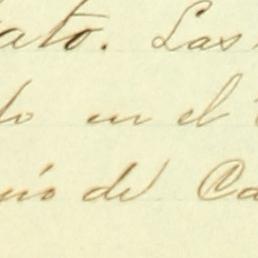 ato. Las
do en el
nio de Ca